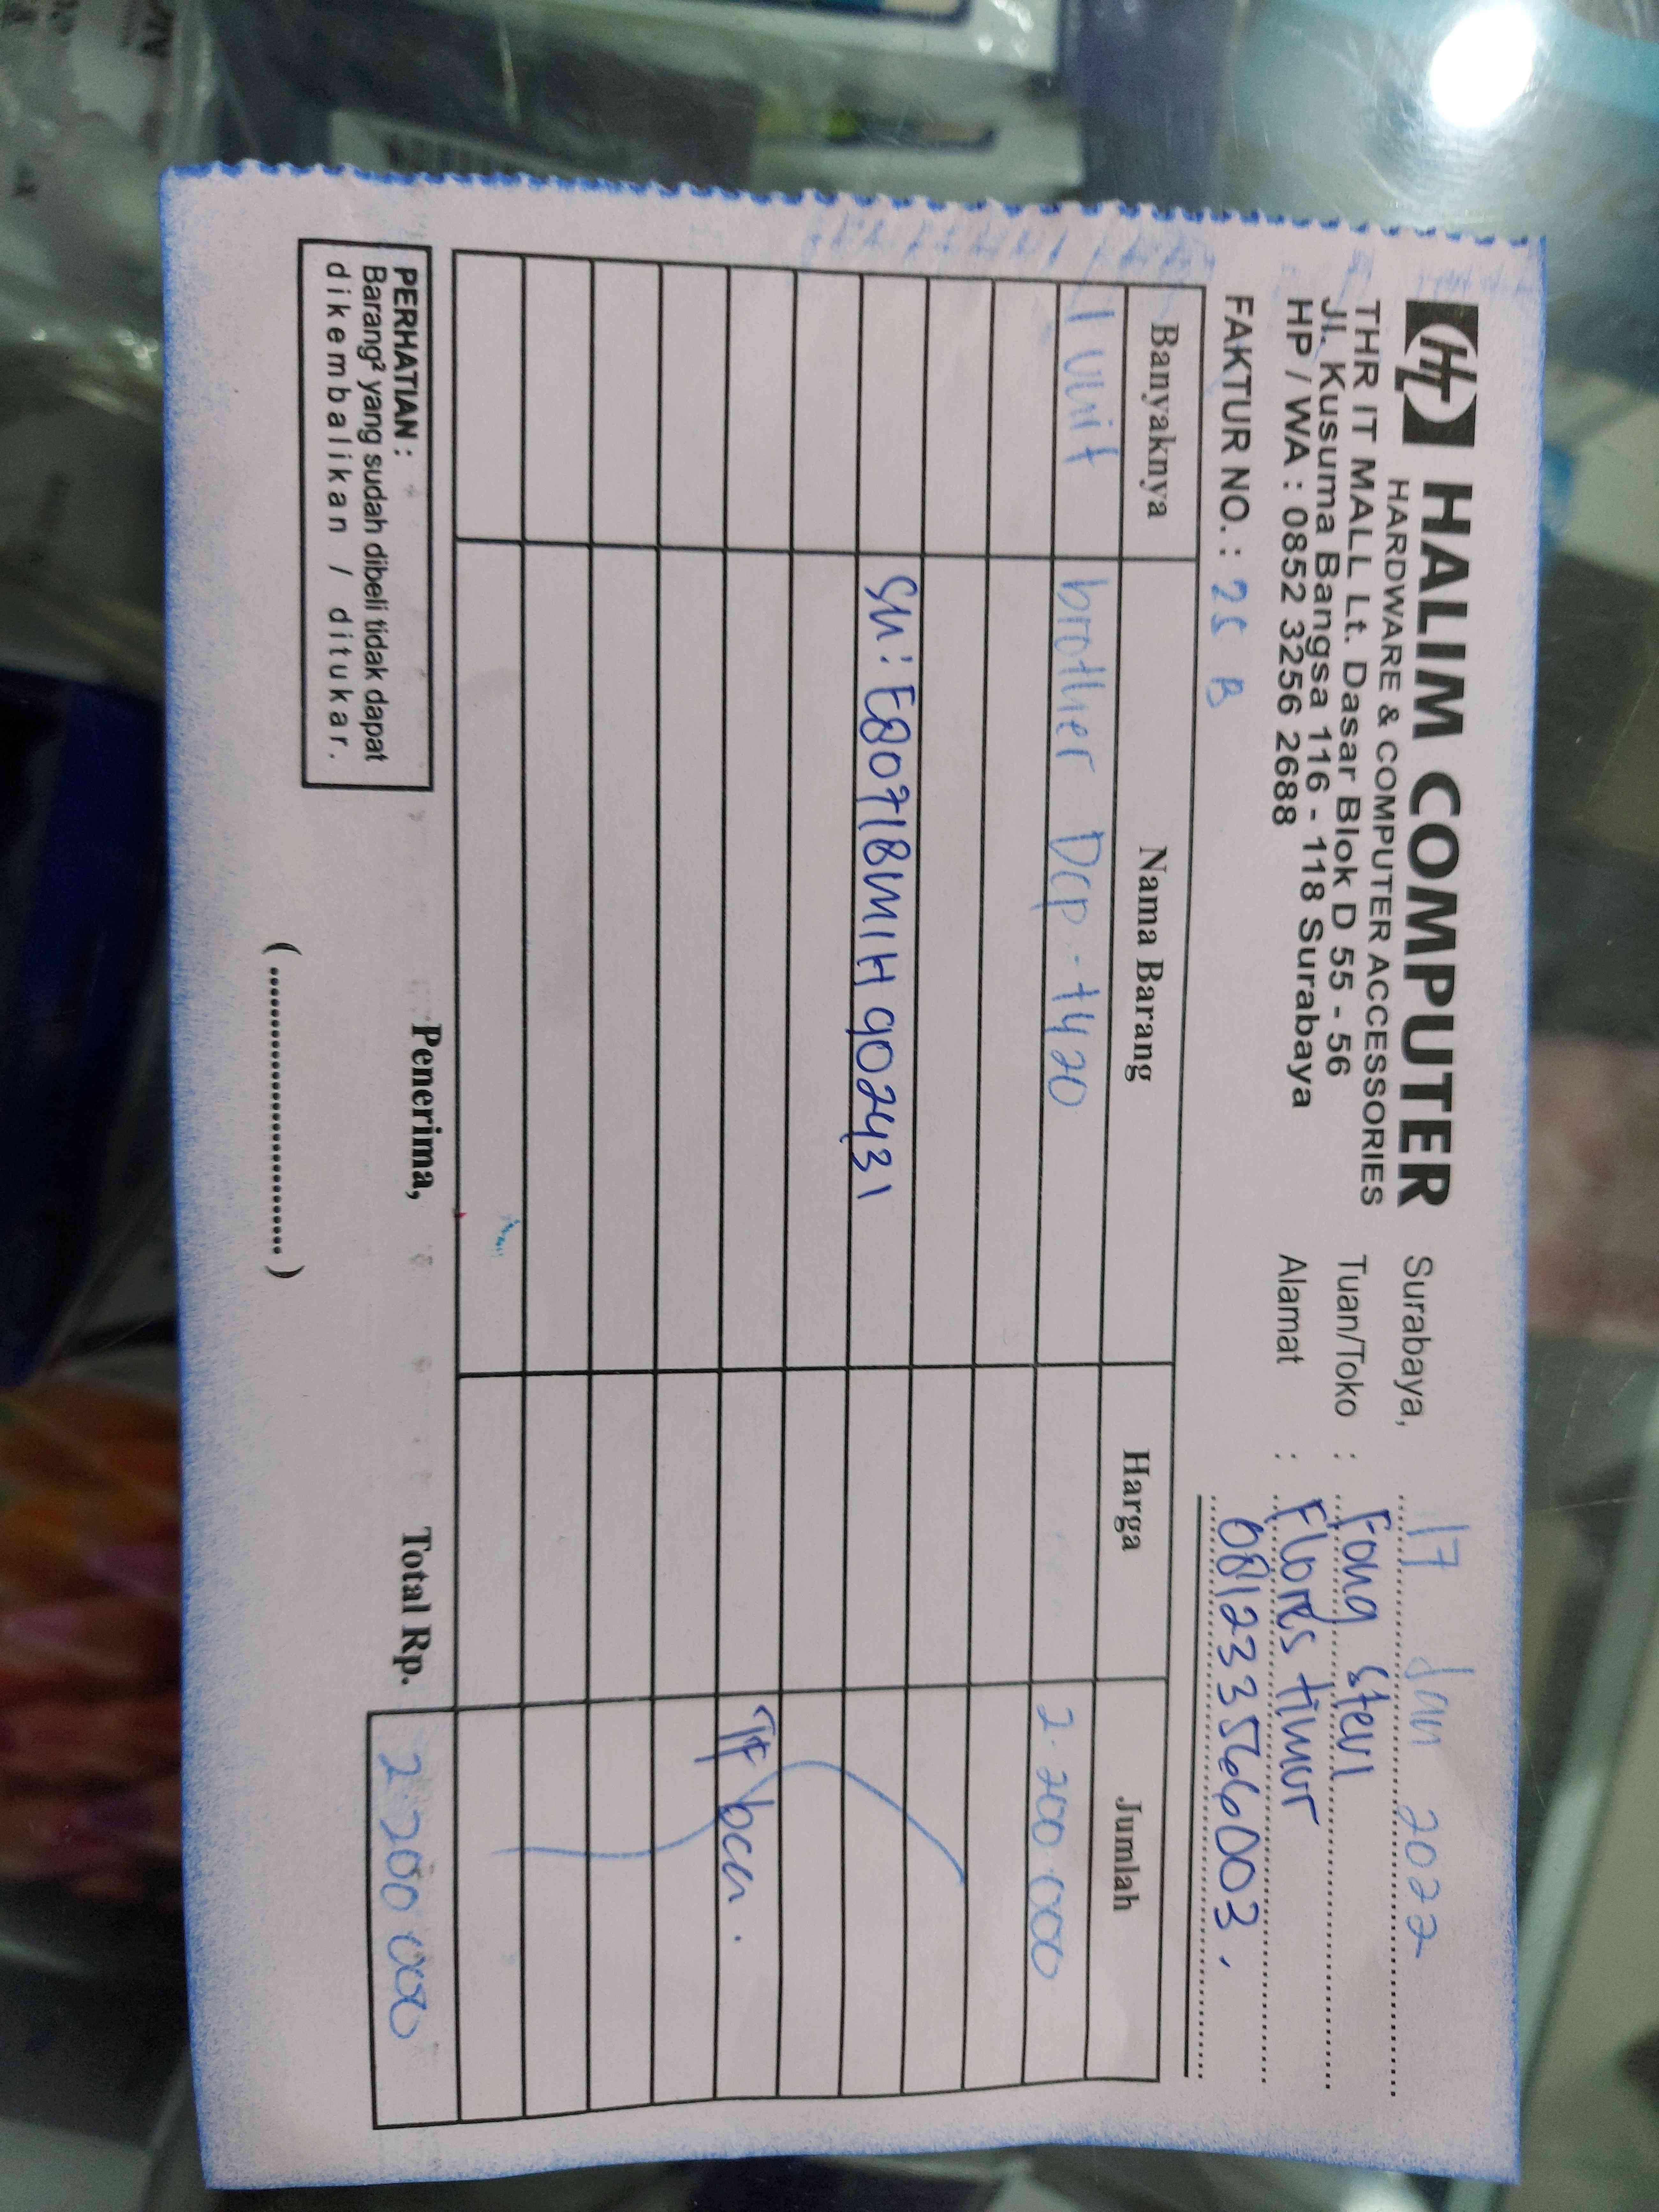 HALIM COMPUTER
HARDWARE & COMPUTER ACCESSORIES
THR IT MALL Lt. Dasar Blok D 55 - 56
Jl. Kusuma Bangsa 116 - 118 Surabaya
HP / WA : 0852 3256 2688
FAKTUR NO. : 25 B
Surabaya, 17 Jan 2022
Tuan/Toko : Fong Stevi
Alamat : Flores timur
081233566003.
Banyaknya Nama Barang Harga Jumlah
1 unit brother Dcp - t420 2.200.000
SN : E80718M1H902431
TF bca.
PERHATIAN :
Barang² yang sudah dibeli tidak dapat
dikembalikan / ditukar.
Penerima,
(..............................)
Total Rp. 2.200.000